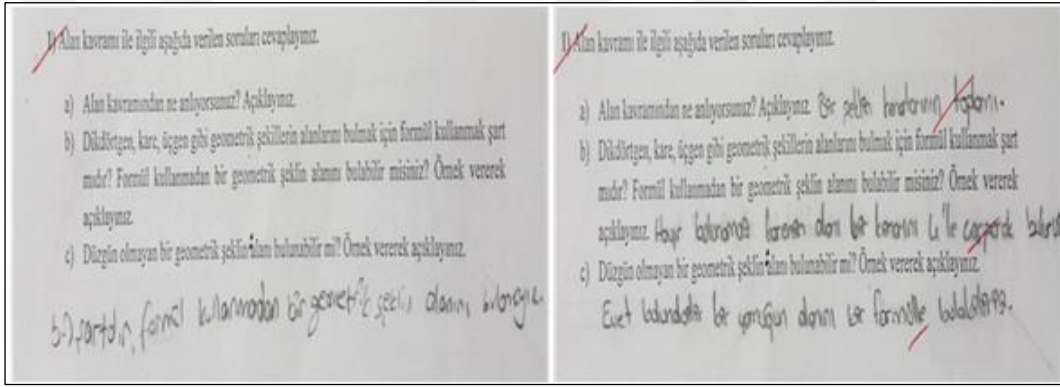 1) Alan kavramı ile ilgili aşağıda verilen soruları cevaplayınız.
a) Alan kavramından ne anlıyorsunuz? Açıklayınız.
b) Dikdörtgen, kare, üçgen gibi geometrik şekillerin alanlarını bulmak için formül kullanmak şart
mıdır? Formül kullanmadan bir geometrik şeklin alanını bulabilir misiniz? Örnek vererek
açıklayınız.
c) Düzgün olmayan bir geometrik şeklin alanı bulunabilir mi? Örnek vererek açıklayınız.
b-) şartdır, formül kullanmadan bir geometrik şeklin alanını
1) Alan kavramı ile ilgili aşağıda verilen soruları cevaplayınız.
a) Alan kavramından ne anlıyorsunuz? Açıklayınız. Bir şeklin kenarlarının toplamı.
b) Dikdörtgen, kare, üçgen gibi geometrik şekillerin alanlarını bulmak için formül kullanmak şart
mıdır? Formül kullanmadan bir geometrik şeklin alanını bulabilir misiniz? Örnek vererek
açıklayınız. Hayır karenin alanı bir kenarını 4 ile çarparak
c) Düzgün olmayan bir geometrik şeklin alanı bulunabilir mi? Örnek vererek açıklayınız.
Evet bir yamuğun alanını bir formülle